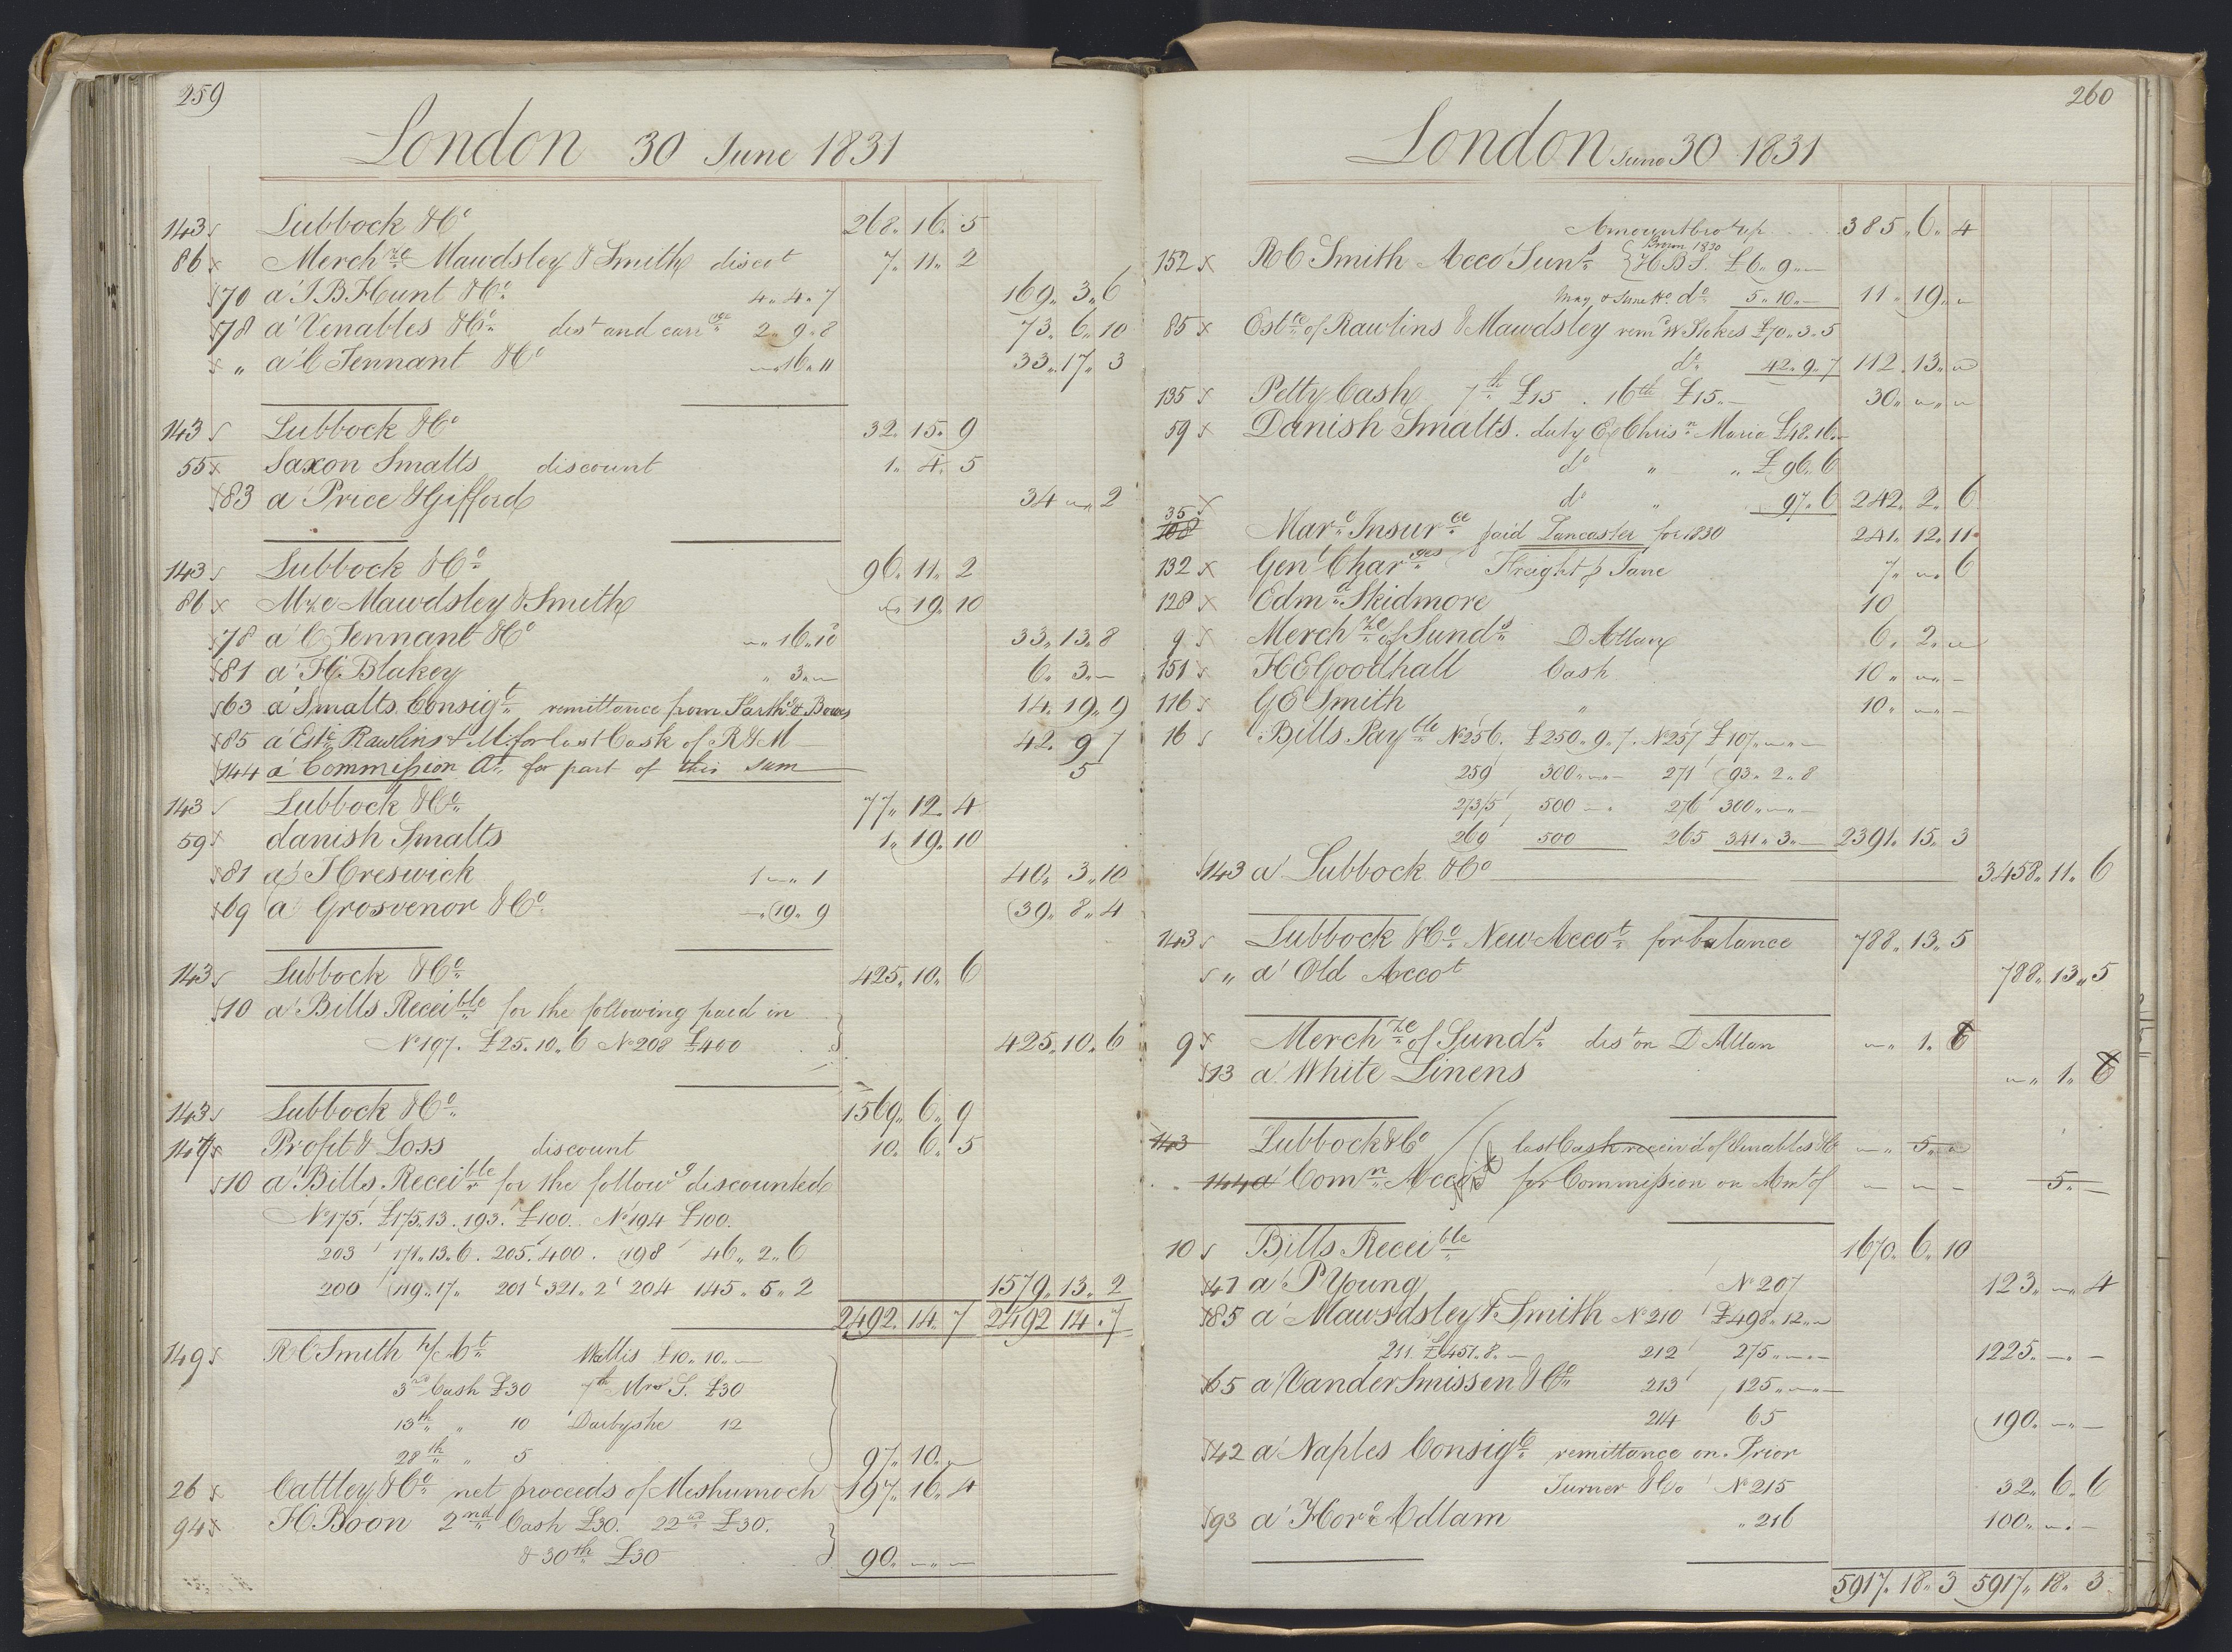 259
London 30 June 1831
143 Lubbock & Co 268. 16. 5
86 x Merchze Mawdsley & Smith discot 7. 11. 2
70 a' J B Hunt & Co 4. 4. 7 169. 3. 6
78 a' Venables & Co dist and carrge 2. 9. 8 73. 6. 10
x " a' C Tennant & Co 16. 11 33. 17. 3
143 Lubbock & Co 32. 15. 9
55 x Saxon Smalts discount 1. 4. 5
83 a' Price & Gifford 34 " 2
143 Lubbock & Co 96. 11. 2
86 x Mze Mawdsley & Smith " 19. 10
78 a' C Tennant & Co " 16. 10 33. 13. 8
81 a' H Blakey " 3. " 6. 3. "
63 a' Smalts Consigt remittance from 14. 19. 9
85 a' Este Rawlins & M. for last Cask of R & M 42. 9 7
144 a' Commission At for part of this sum 5
143 Lubbock & Co 77. 12. 4
59 x danish Smalts 1. 19. 10
81 a' J Creswick 1 " 1 40. 3. 10
69 a' Grosvenor & Co " 19. 9 39. 8. 4
143 Lubbock & Co 425. 10. 6
10 a' Bills Receible for the following paid in
No 197. £25. 10. 6 No 208 £400 425. 10. 6
143 Lubbock & Co 1569. 6. 9
147 x Profit & Loss discount 10. 6. 5
10 a' Bills Receible for the followg discounted
No 175. £175. 13. 193. £100. No 194 £100.
203 171. 13. 6. 205. 400. 198 46. 2. 6
200 119. 17. 201 321. 2 204 145. 5. 2 1579. 13. 2
2492. 14. 7 2492 14. 7
149 x R C Smith Wallis £10. 10. "
3rd Cash £30 7th Mrs S. £30
13th " 10 Darbyshe 12
28th " 5 97. 10. "
26 x Cattley & Co net proceeds of Meshumoch 197. 16. 4
94 x H Boon 2nd Cash £30. 22nd £30.
& 30th £30 90. " "
260
London June 30 1831
Amount brot up 385. 6. 4
152 x R C Smith Acco Sunds { Brown 1830 H B S. £6. 9. "
May & June Ho. do 5. 10. " 11. 19. "
85 x Estte of Rawlins & Mawdsley remd W Stokes £70. 3. 5
do 42. 9. 7 112. 13. "
135 x Petty Cash 7th £15 . 16th £15. " 30. " "
59 x Danish Smalts. duty Ex Chrisn Maria £48. 16. "
do " " £96. 6
do " 97. 6 242. 2. 6
35 x
108 Mare Insurce paid Lancaster for 1830 241. 12. 11
132 x Genl Charges Freight p Jane 7. " 6
128 x Edmd Skidmore 10
9 x Merchze of Sunds D Allan 6. 2. "
151 H E Goodhall Cash 10 " " "
116 x G E Smith " 10. " "
16 Bills Payble No 256. £250. 9. 7. No 257 £107. " "
259 300. " " 271 93. 2. 8
273/5 500 " 276 300. " "
269 500 265 341. 3. " 2391. 15. 3
143 a' Lubbock & Co 3458. 11. 6
143 Lubbock & Co New Accot for balance 788. 13. 5
" a' Old Accot 788. 13. 5
9 x Merchze of Sunds dist on D Allan " 1. 6
13 a' White Linens " 1. 6
143 Lubbock & Co last Cash receivd of Venables & Co " 5. "
144 a' Comn Accot for Commission on Amt of " " " 5. "
10 Bills Receible 1670. 6. 10
47 a' P Young No 207 123. " 4
85 a' Mawsdsley & Smith No 210 £498. 12. "
211. £451. 8. " 212 275. " " 1225. " "
65 a' Vander Smissen & Co 213 125. " "
214 65 190. " "
42 a' Naples Consigt remittance on. Prior
Turner & Co No 215 32. 6. 6
93 a' Hore Adlam " 216 100. " "
5917. 18. 3 5917. 18. 3